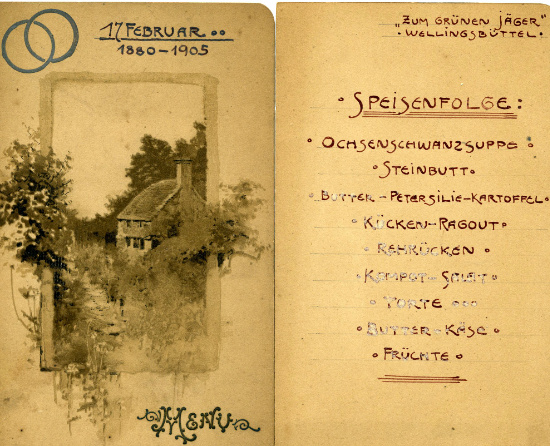 17 FEBRUAR
1880-1905
MENU
"ZUM GRÜNEN JÄGER"
WELLINGSBÜTTEL
SPEISENFOLGE:
OCHSENSCHWANZSUPPE
STEINBUTT
BUTTER-PETERSILIE-KARTOFFEL
KÜCKEN-RAGOUT
REHRÜCKEN
KOMPOT-SALAT
TORTE
BUTTER-KÄSE
FRÜCHTE